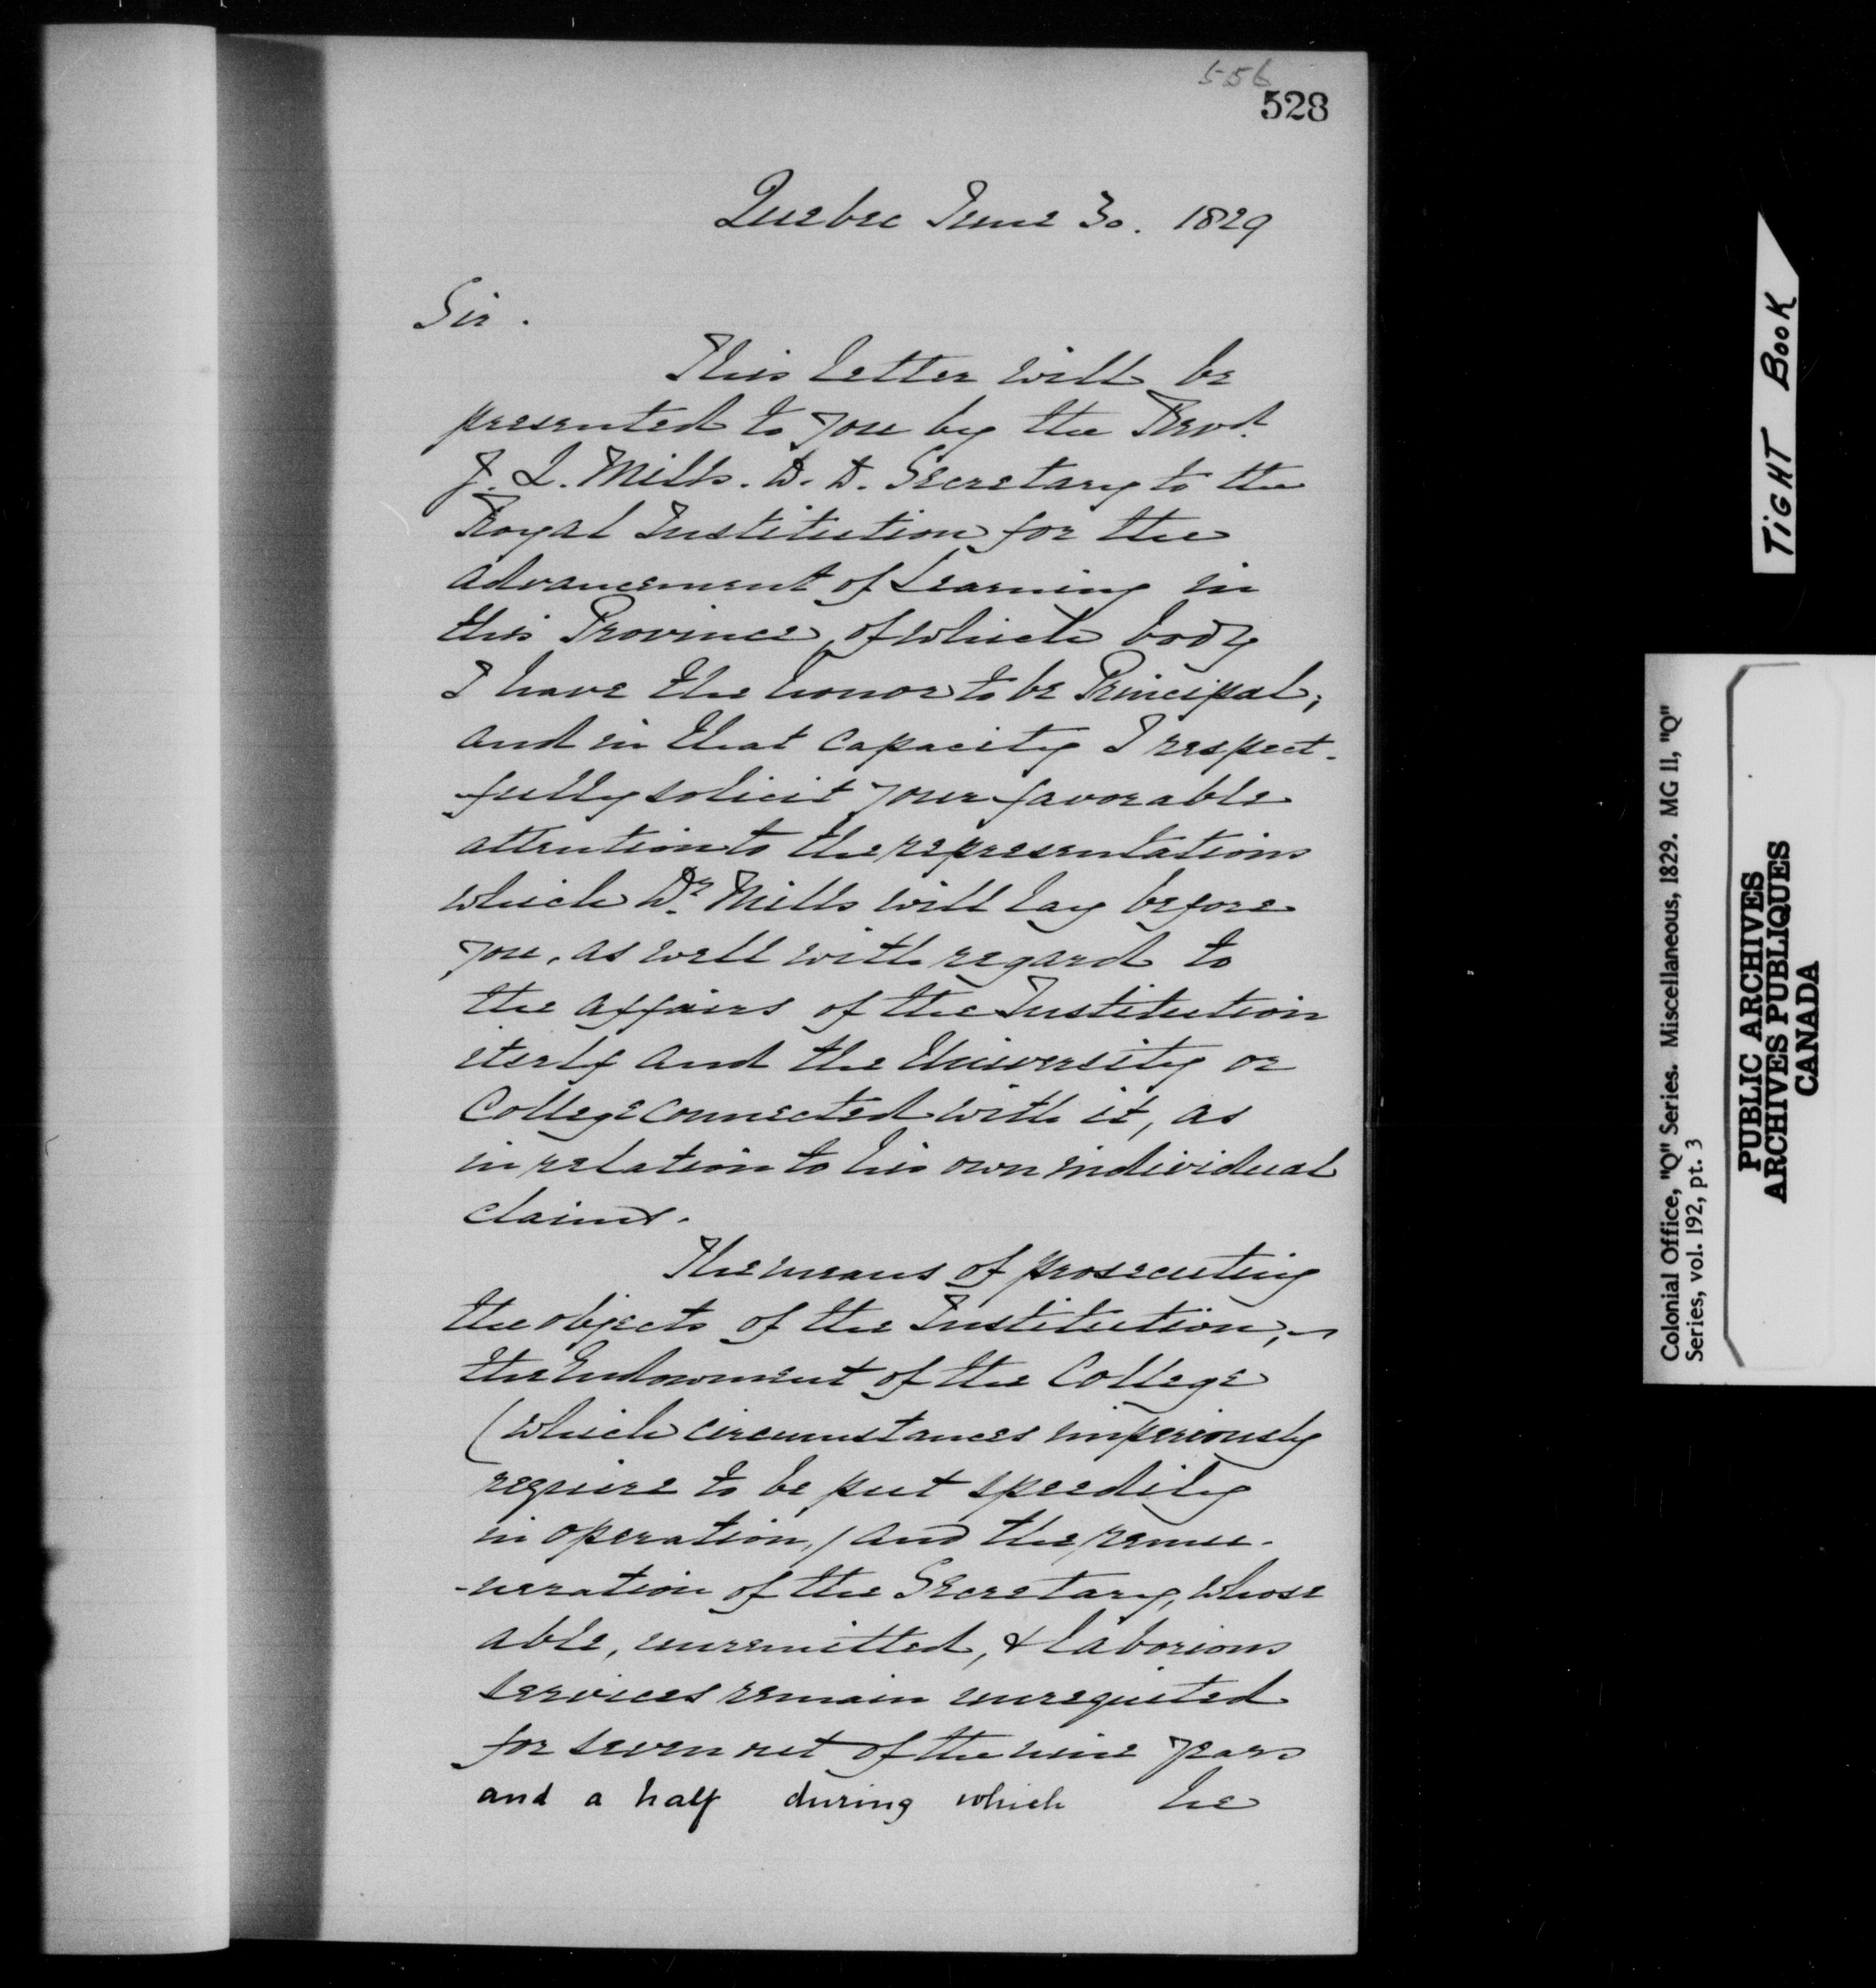 556
528
Quebec June 30. 1829
Sir.
This letter will be
presented to you by the Revd.
J. L. Mills. D. D. Secretary to the
Royal Institution for the
advancement of Learning in
this Province, of which body
I have the honor to be Principal;
and in that capacity I respect-
fully solicit your favorable
attention to the representations
which Dr. Mills will lay before
you, as well with regard to
the affairs of the Institution
itself and the University or
College connected with it, as
in relation to his own individual
claims.
The means of prosecuting
the objects of the Institution,-
the Endowment of the College
(which circumstances imperiously
require to be put speedily
in operation,) and the remu-
-neration of the Secretary, whose
able, unremitted, & laborious
services remain unrequited
for seven out of the nine years
and a half during which he
TIGHT BOOK
Colonial Office, "Q" Series. Miscellaneous, 1829. MG 11, "Q"
Series, vol. 192, pt. 3
PUBLIC ARCHIVES
ARCHIVES PUBLIQUES
CANADA